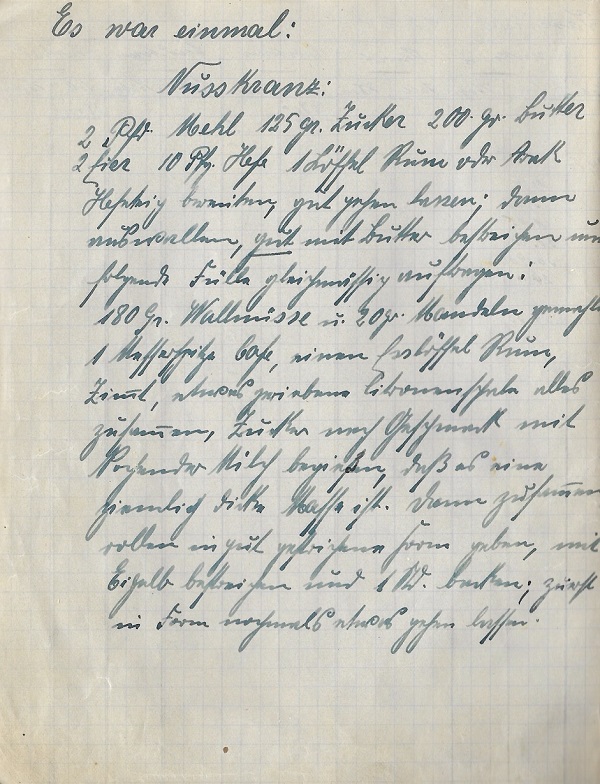 Es war einmal:
Nusskranz:
2 Pfd. Mehl 125 gr. Zucker 200 gr. Butter
2 Eier 10 Pfg. Hefe 1 Löffel Rum oder Arak
Hefeteig bereiten, gut gehen lassen; dann
auswallen, gut mit Butter bestreichen und
folgende Fülle gleichmässig auftragen:
180 Gr. Wallnüsse u. 20 gr. Mandeln gemahlen
1 Messerspitze Cafe, einen Esslöffel Rum,
Zimt, etwas geriebene Citronenschale alles
zusammen, Zucker nach Geschmack mit
kochender Milch begießen, daß es eine
ziemlich dicke Masse ist. Dann zusammen
rollen in gut gestrichene Form geben, mit
Eigelb bestreichen und 1 Std. backen; zuerst
in Form nochmals etwas gehen lassen.